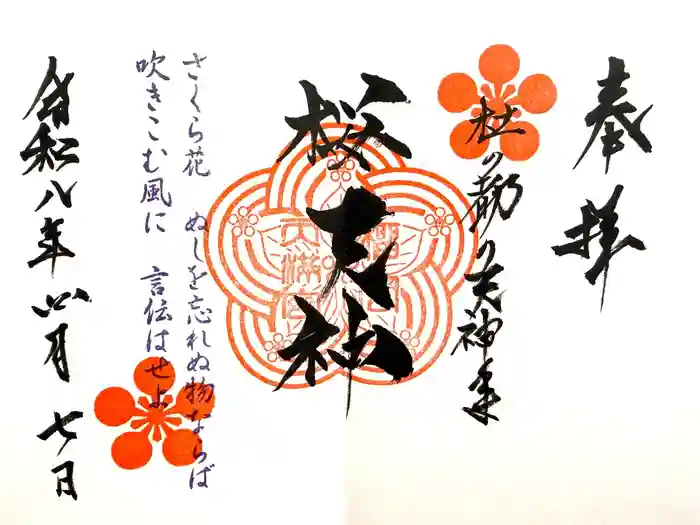 奉拝
杜の都の天神
桜天神
天満宮
さくら花　ぬしを忘れぬ物ならば
吹きこむ風に　言伝はせよ
令和八年四月七日